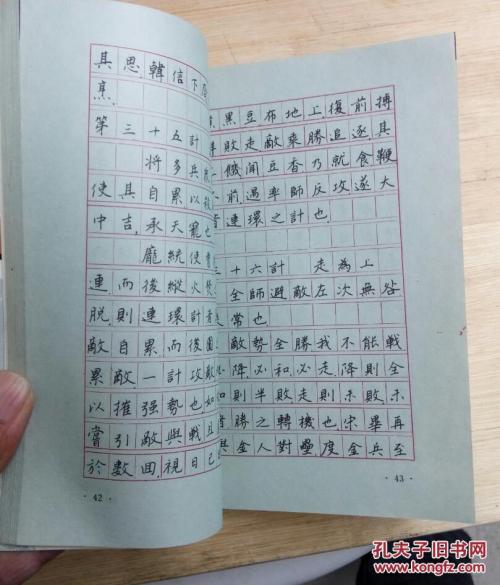 其思韓信下
焦.
第三十五計
將多兵
使其自累以
中吉,承天寵也
龐統使
連,而後縱火
脫,則連環計
敵自累,而後圖
累敵一計攻敵
以摧强勢也如
嘗引敵與戰且
於數回,視日已
42
黑豆布地上,復前搏
敗走敵乘勝追逐其
饑聞豆香乃就食鞭
前,遇率師反攻遂大
連環之計也
十六計 走為上
全師避敵左次無咎
常也
敵勢全勝我不能戰
降,必和,必走降則全
則半敗走則未敗未
勝之轉機也宋畢再
金人對壘,度金兵至
43
孔夫子旧书网
www.kongfz.com